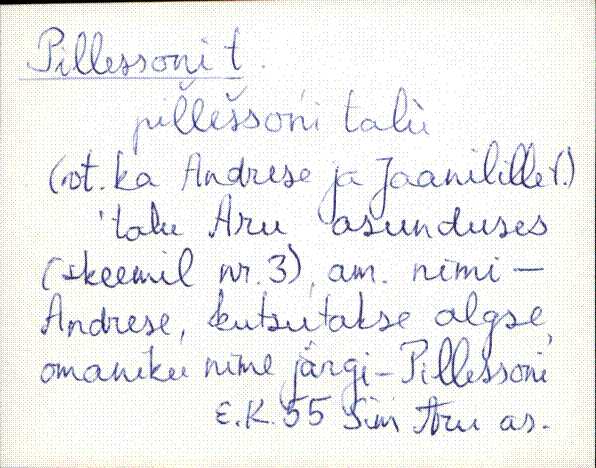 Pillessoni t.
pil̆lešsoni talù
(vt. ka Andrese ja Jaanilille t.)
'talu Aru asunduses
(skeemil nr. 3), am. nimi –
Andrese, kutsutakse algse
omaniku nime järgi – Pillessoni
E.K. 55 Sim Aru as.